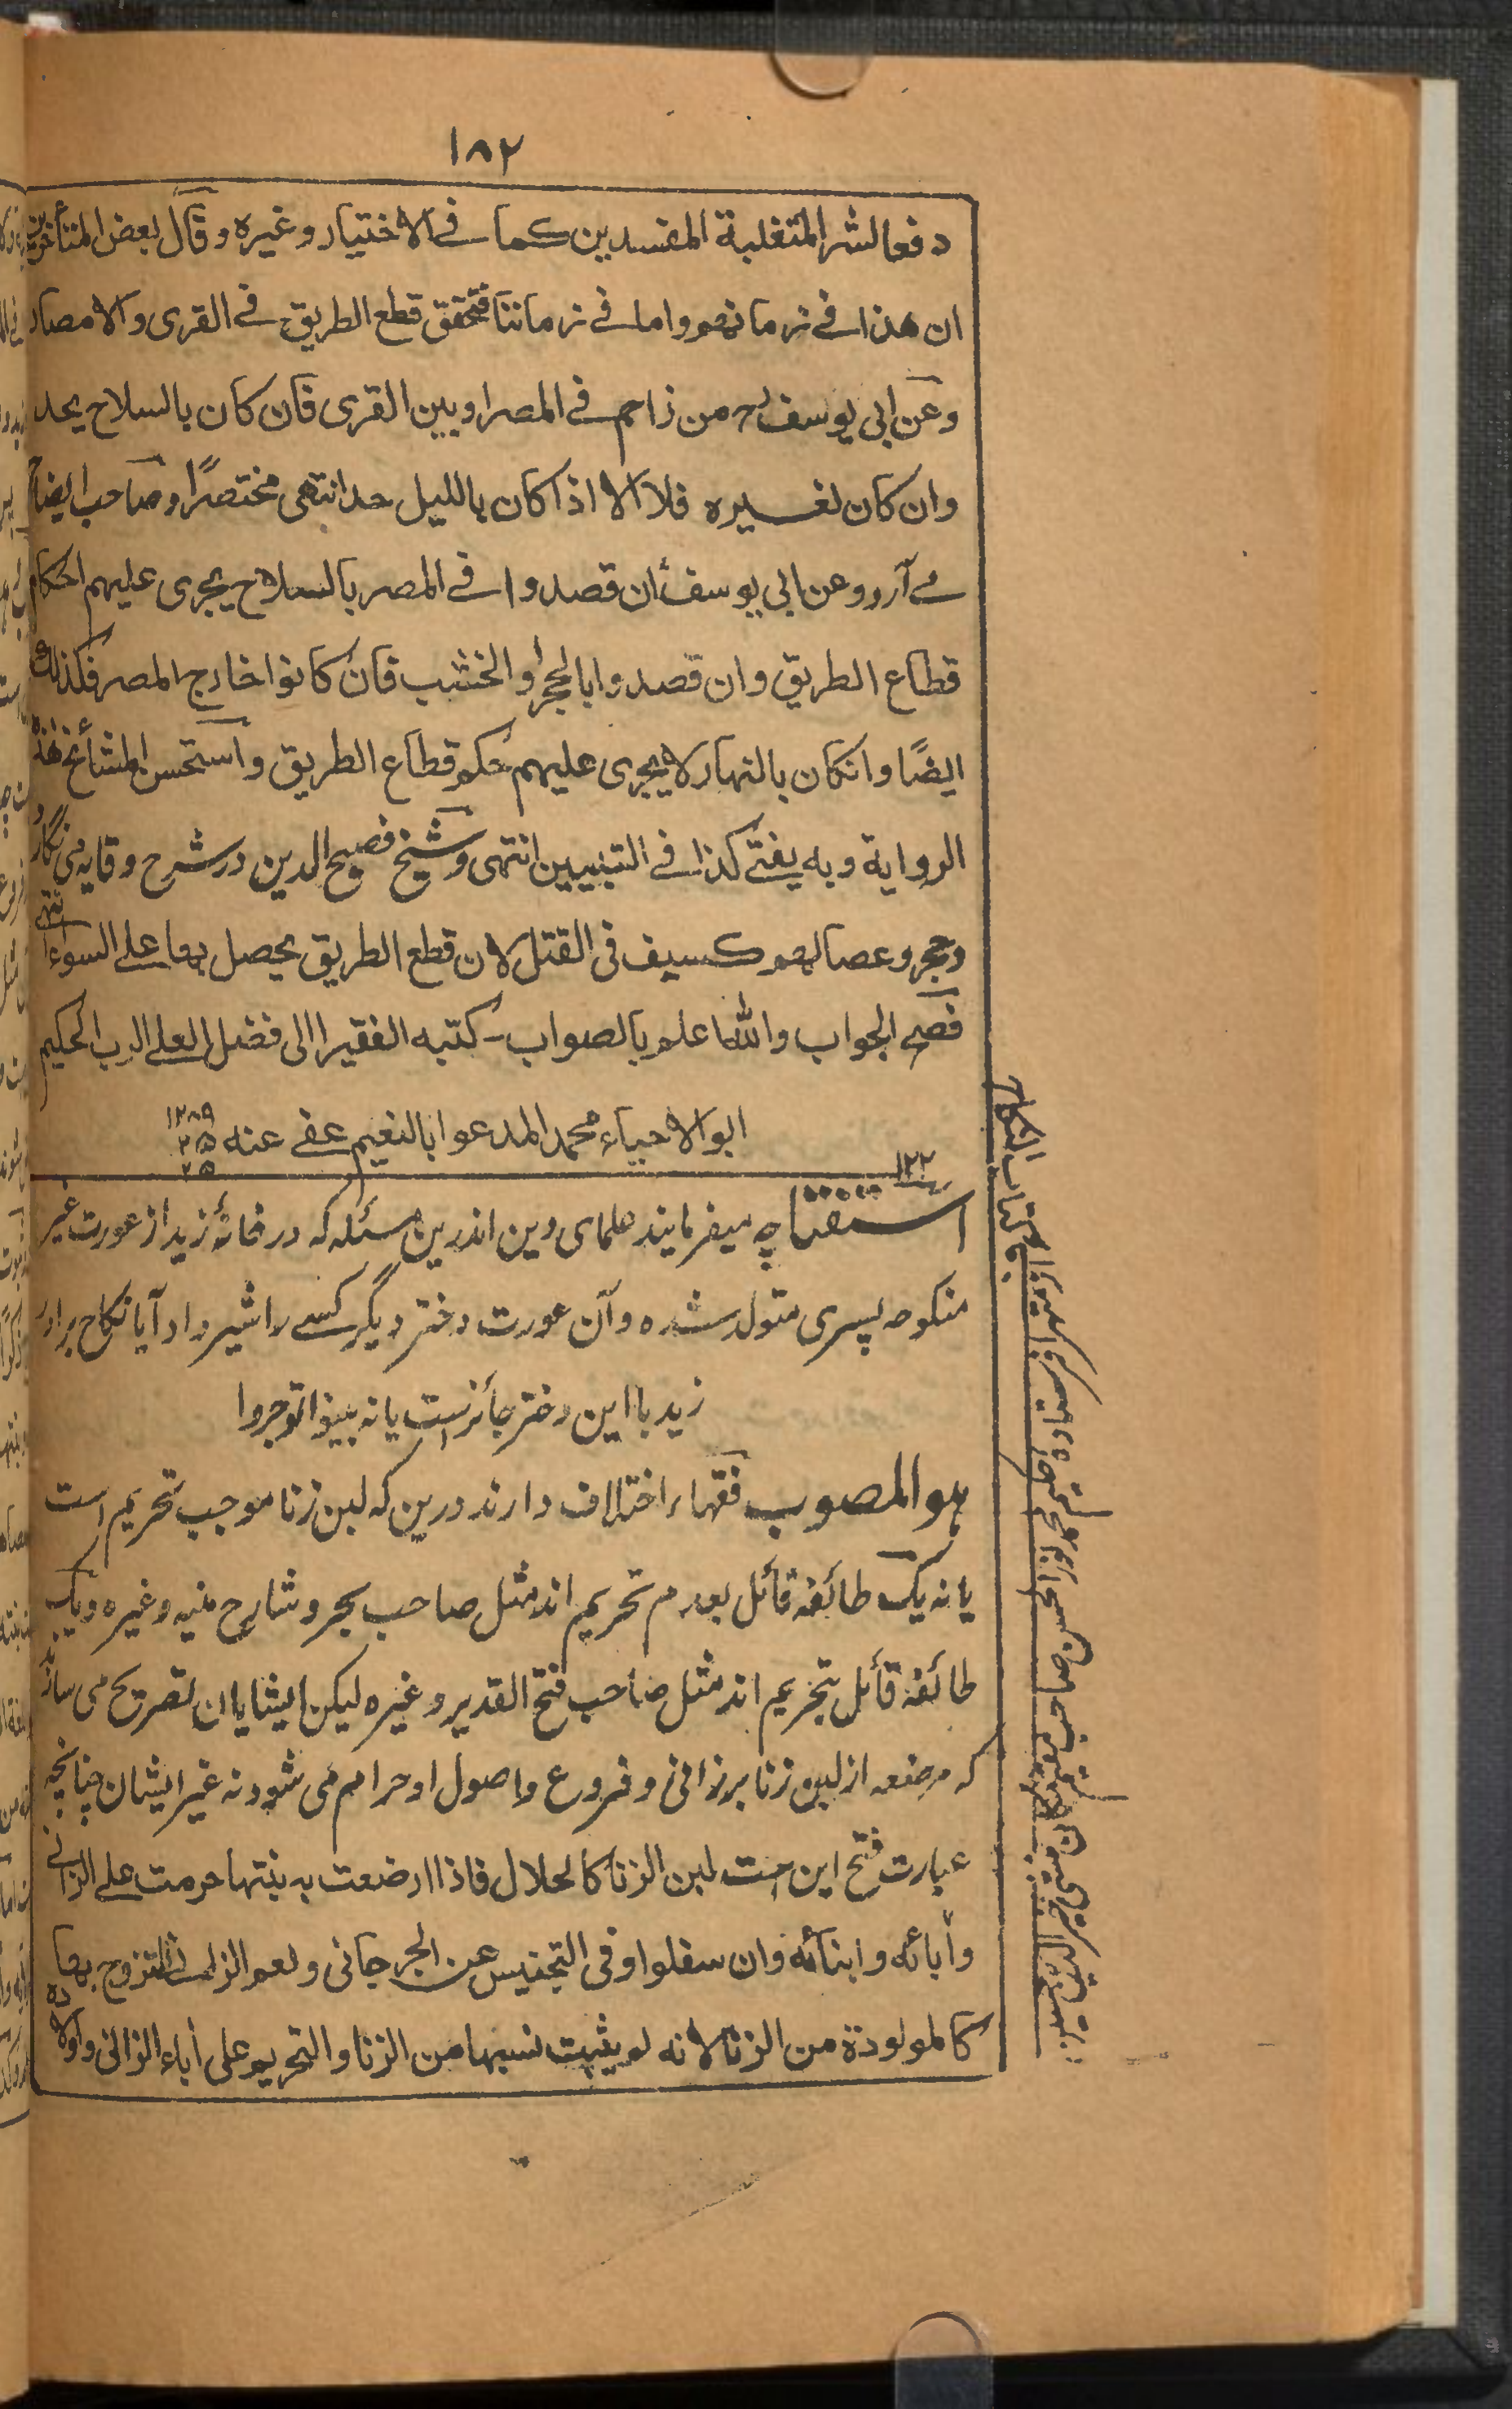 ١٨٢
دفعا لشر المتغلبة المفسدين كما فى الاختيار وغيره وقال بعض المتأخرين
ان هذا فى زمانهم واما فى زماننا فتحقق قطع الطريق فى القرى والامصار
وعن ابى يوسف رح من زاحم فى المصر او بين القرى فان كان بالسلاح يحد
وان كان لغيره فلا الا اذا كان بالليل حد انتهى مختصرًا وصاحب ايضاح
مے آرد وعن ابى يوسف ان قصدوا فى المصر بالسلاح يجرى عليهم احكام
قطاع الطريق وان قصدوا بالحجر او الخشب فان كانوا خارج المصر فكذلك
ايضًا وانكان بالنهار لا يجرى عليهم حكم قطاع الطريق واستحسن المشائخ هذه
الرواية وبه يفتے كذا فى التبيين انتهى وشيخ فصيح الدين در شرح وقايه مى نگارد
وحجر وعصا لهم كسيف فى القتل لان قطع الطريق يحصل بهما على السواء انتهى
فصح الجواب والله اعلم بالصواب۔ كتبه الفقير الى فضل العلى الرب الحكيم
ابو الاحياء محمد المدعو بالنعيم عفى عنه ١٢٨٩
١٢٢
استفتا چه ميفرمايند علماى دين اندرين مسئله كه در خانۀ زيد از عورت غير
منكوحه پسرى متولد شده وآن عورت دختر ديگر كسے را شير داد آيا نكاح برادر
زيد با اين دختر جائز است يا نه بينوا توجروا
هو المصوب فقهاء اختلاف دارند درين كه لبن زنا موجب تحريم است
يا نه يک طائفه قائل بعدم تحريم اند مثل صاحب بحر وشارح منيه وغيره ويک
طائفه قائل بتحريم اند مثل صاحب فتح القدير وغيره ليكن ايشايان تصريح مى سازند
كه مرضعه از لبن زنا بر زانى وفروع واصول او حرام مى شود نه غير ايشان چنانچه
عبارت فتح اين است لبن الزنا كالحلال فاذا ارضعت به بنتها حرمت على الزانى
وأبائه وابنائه وان سفلوا وفى التجنيس عن الجرجانى ولعم الزانى التزوج بها
كالمولودة من الزنا لانه لم يثبت نسبها من الزنا والتحريم على أباء الزانى واولاده
كتاب النكاح